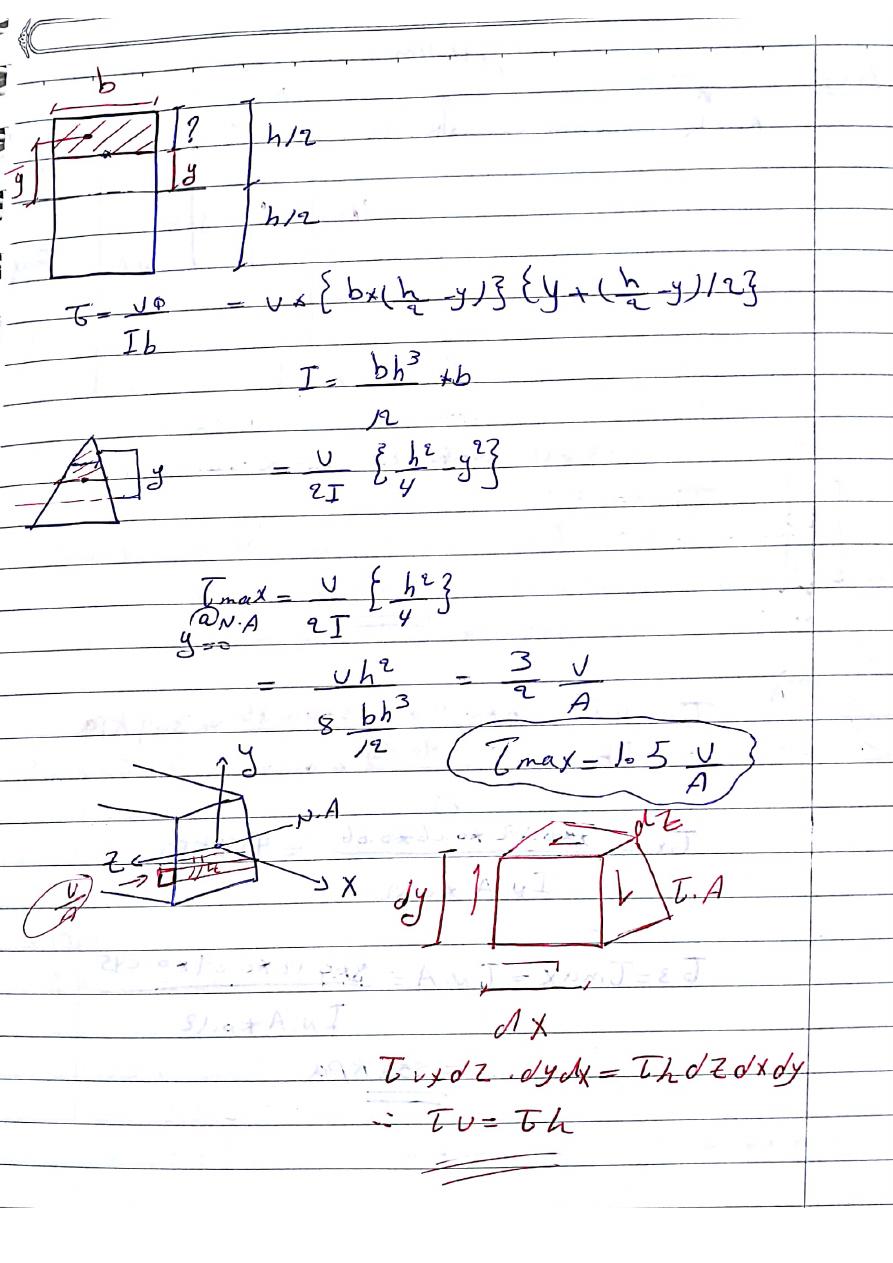 b
?
h/2
ȳ
y
h/2
τ = VQ/Ib = V × { b×(h/2 - y)} {y + (h/2 - y)/2}
I = bh³/12 * b
y
= V/2I { h²/4 - y²}
τmax = V/2I { h²/4 }
@N.A
y=0
= Vh²/(8 bh³/12) = 3/2 V/A
τmax = 1.5 V/A
y
N.A
Z
X
V/A
dz
dy
τ.A
dx
τv x dz . dydx = τh dz dx dy
∴ τv = τh